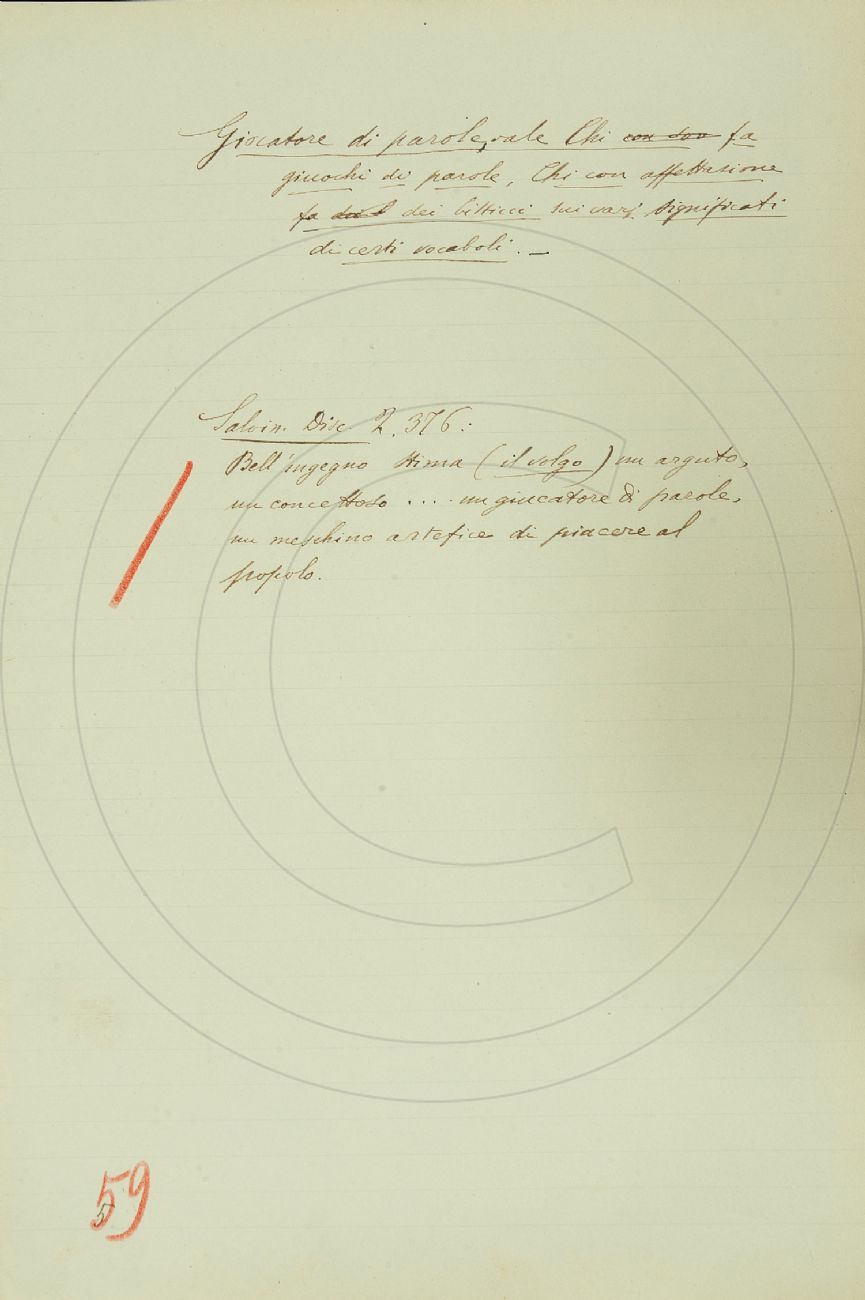 Giocatore di parole, vale Chi fa
giuochi di parole, Chi con affettazione
fa dei bisticci sui varj significati
di certi vocaboli. —
Salvin. Disc. 2. 376:
Bell'ingegno stima (il volgo) un arguto,
un concettoso .... un giucatore di parole,
un meschino artefice di piacere al
popolo.
59